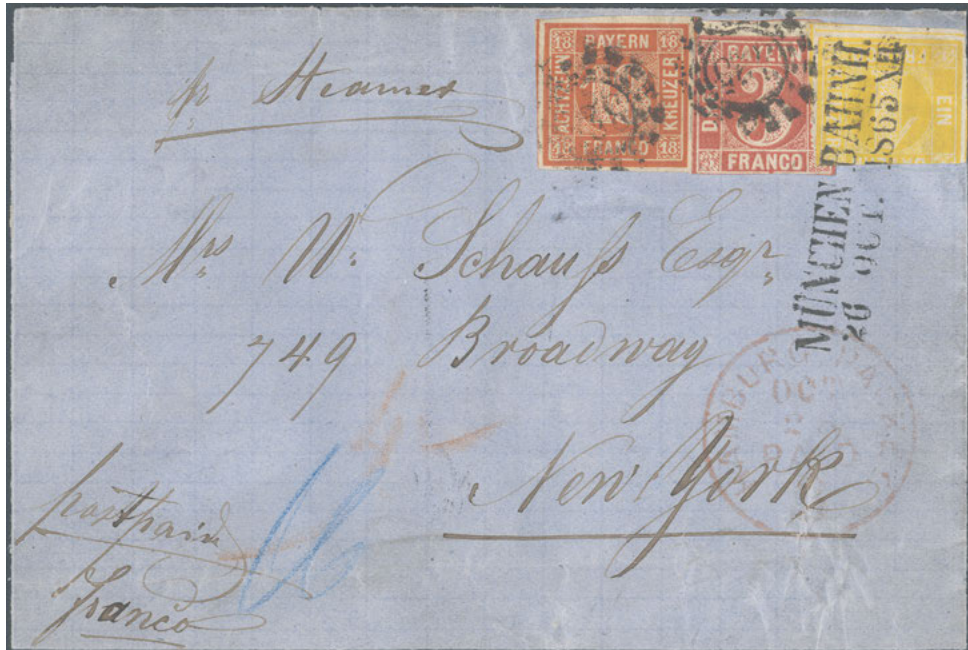 pr Steamer
18 BAYERN 18
ACHTZEHN
KREUZER
18 FRANCO 18
BAYERN
3
FRANCO
EIN
MÜNCHEN BAHNH.
26 OCT. 1865 XII
Mrs W. Schauß Esqr.
749 Broadway
New York
PAID
postpaid
Franco